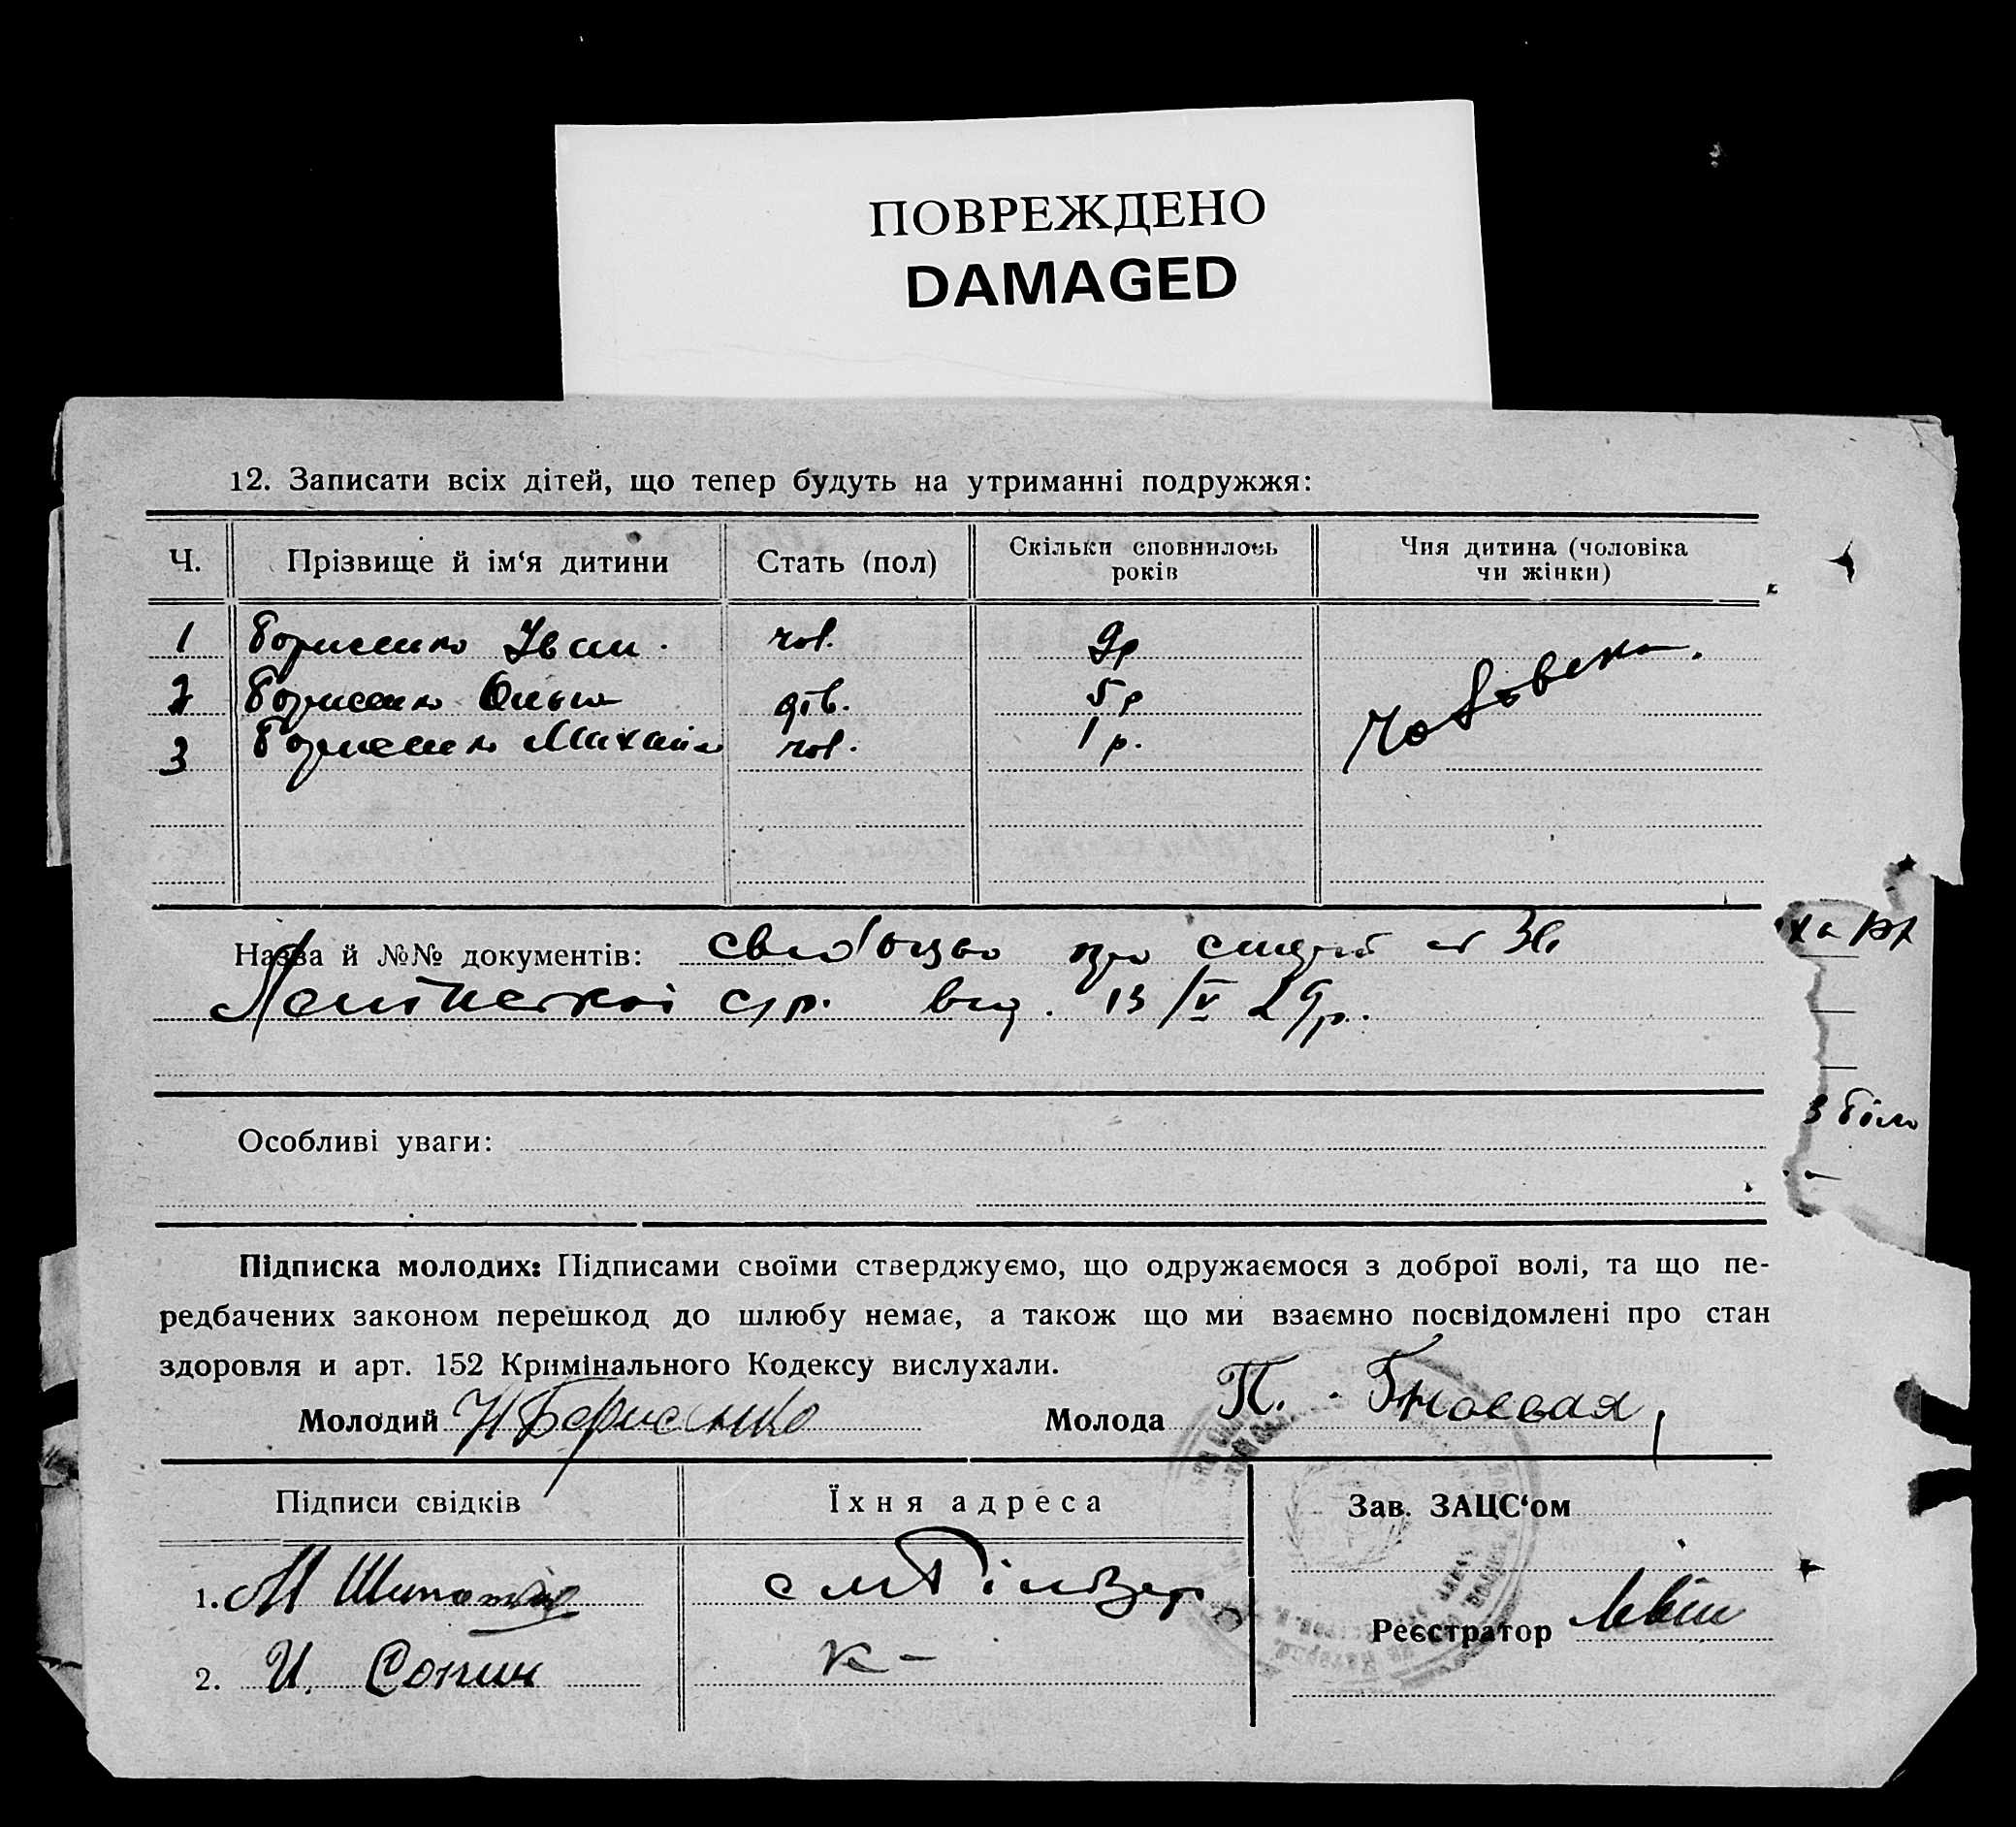 ПОВРЕЖДЕНО
DAMAGED
12. Записати всіх дітей, що тепер будуть на утриманні подружжя:
Ч. Прізвище й ім'я дитини Стать (пол) Скільки сповнилось років Чия дитина (чоловіка чи жінки)
1 Борисенко Іван. чол. 9р
2 Борисенко Ольга дів. 5р
3 Борисенко Михайло чол. 1р.
Чоловіка.
Назва й №№ документів: свідоцво про смерть № 36
сур. від. 13/V 29р.
Особливі уваги:
Підписка молодих: Підписами своїми стверджуємо, що одружаємося з доброї волі, та що пе-
редбачених законом перешкод до шлюбу немає, а також що ми взаємно посвідомлені про стан
здоровля и арт. 152 Кримінального Кодексу вислухали.
Молодий Борисенко Молода П.
Підписи свідків Їхня адреса Зав. ЗАЦС'ом
1. М
Реєстратор
2. И. Сопин к-